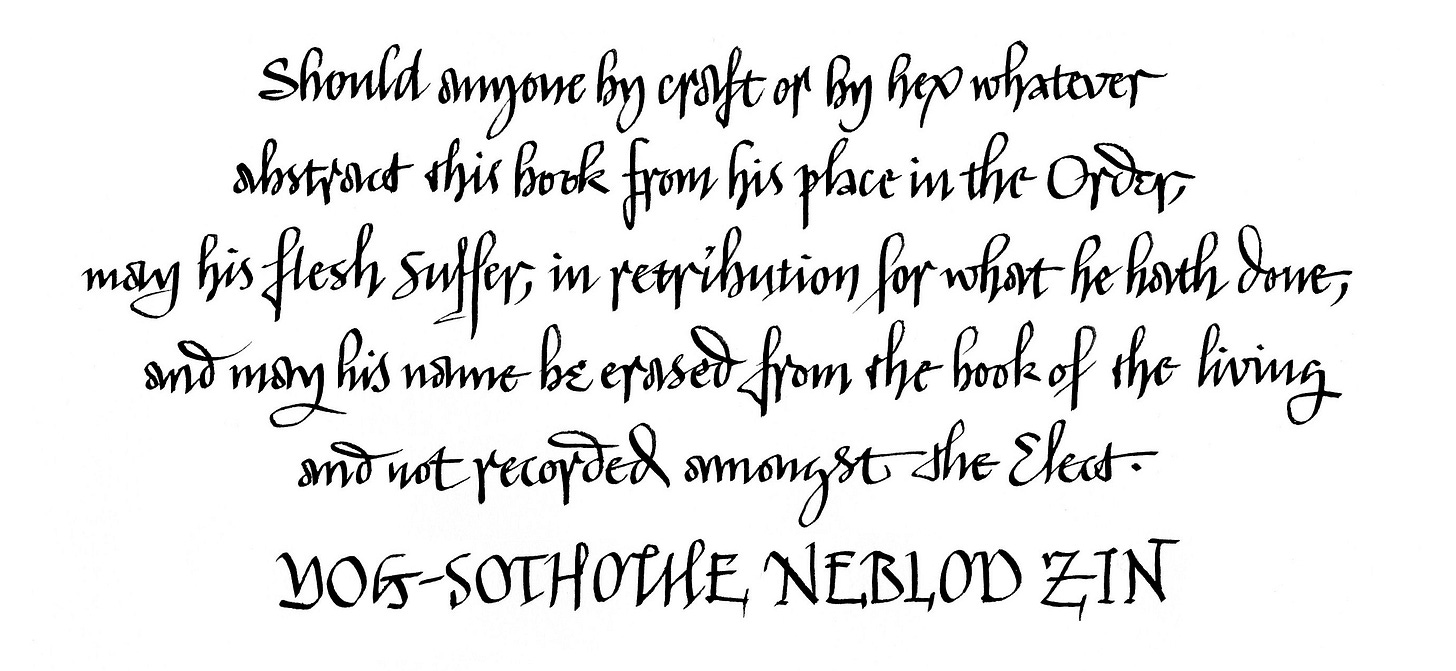 Should anyone by craft or by hex whatever
abstract this book from his place in the Order,
may his flesh suffer, in retribution for what he hath done,
and may his name be erased from the book of the living
and not recorded amongst the Elect.
YOG-SOTHOTHE NEBLOD ZIN